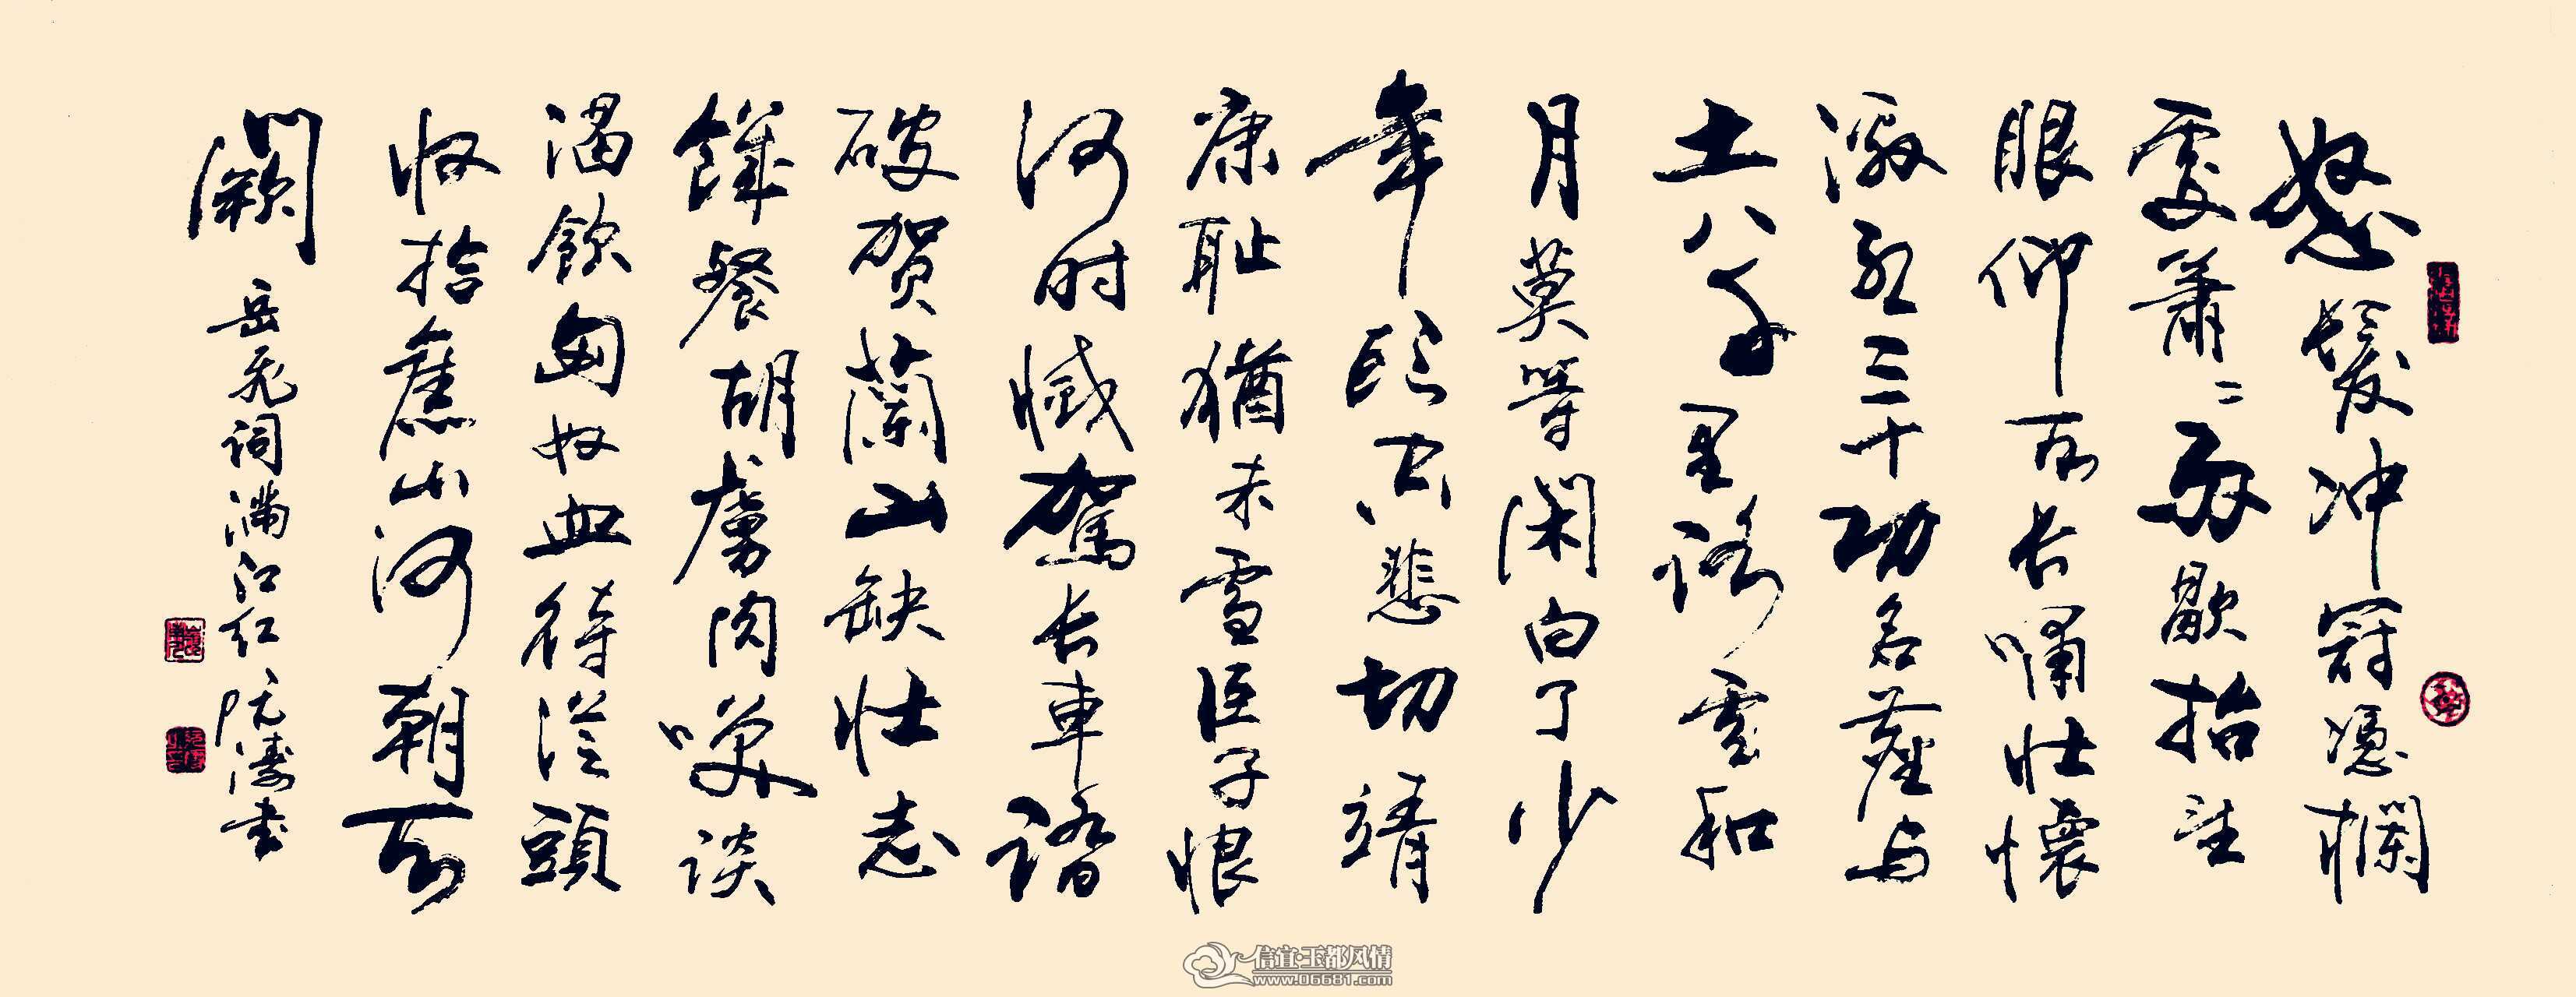 怒髮冲冠憑欄
處蕭々雨歇抬望
眼仰天长嘯壮懷
激烈三十功名塵与
土八千里路雲和
月莫等闲白了少
年头空悲切靖
康耻猶未雪臣子恨
何时憾駕长車踏
破贺蘭山缺壮志
饑餐胡虜肉笑谈
渴飲匈奴血待從頭
收拾舊山河朝天
闕
岳飛词满江红 阮濤书
信宜·玉都风情
www.06681.com